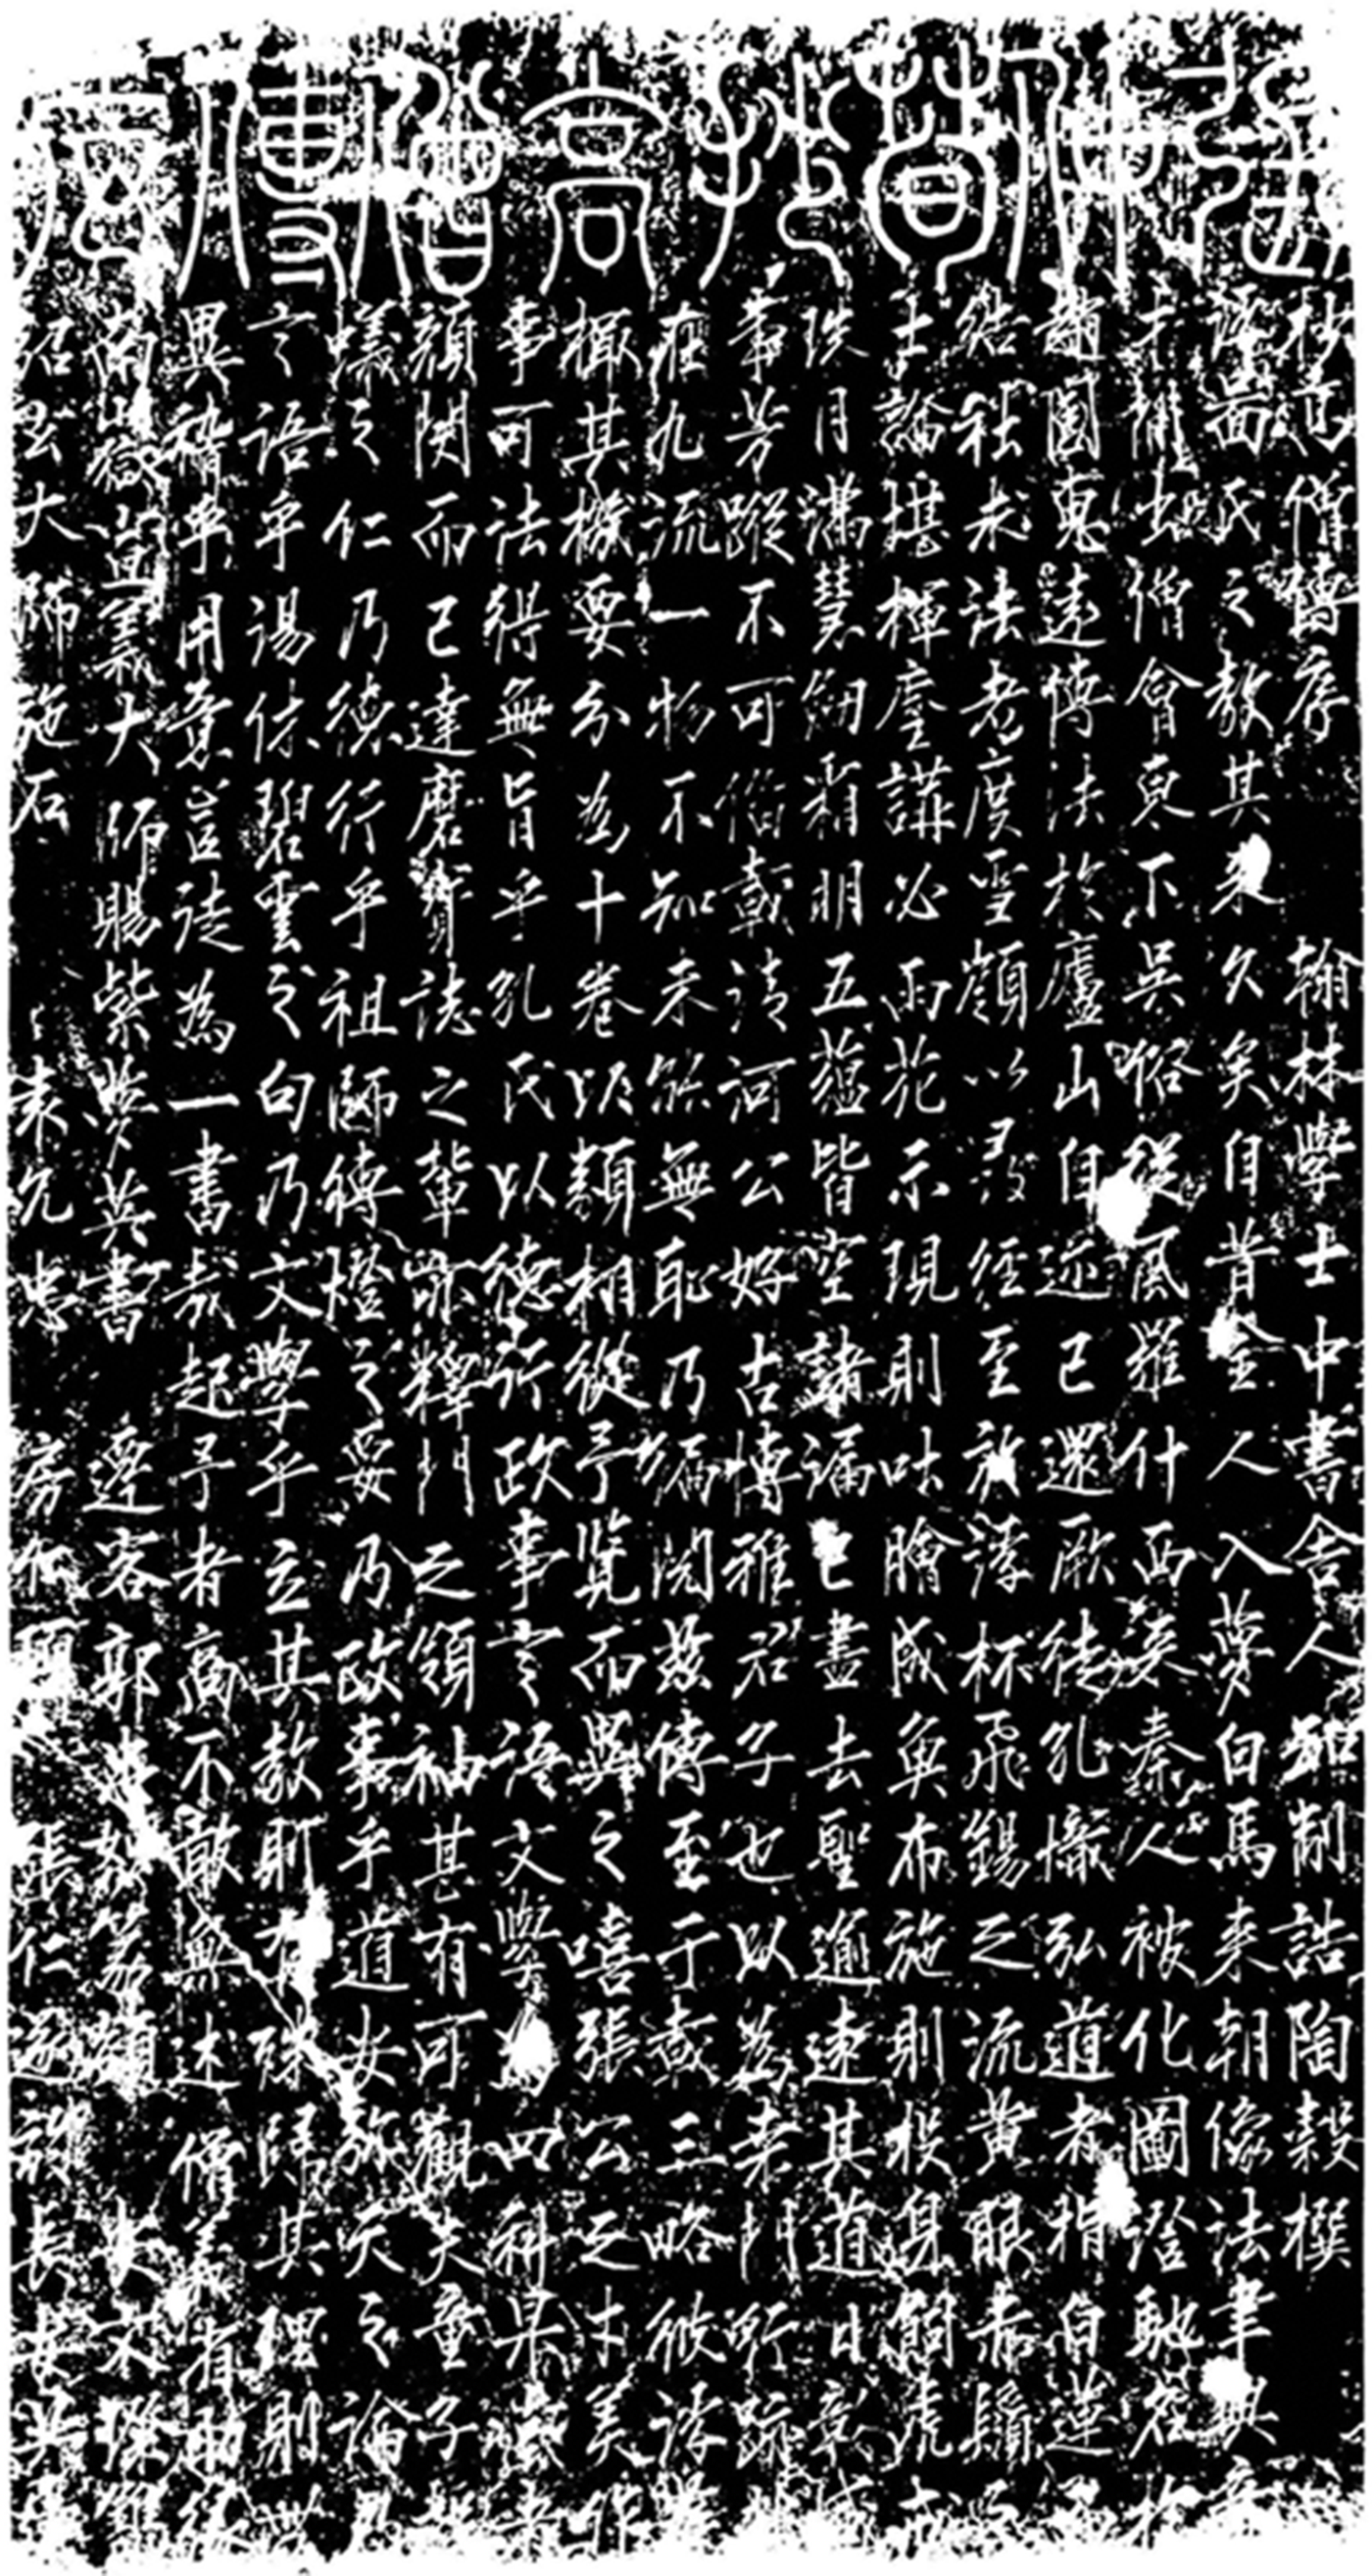 佛抄高僧傳序
抄高僧傳序 翰林學士中書舍人知制誥陶穀撰
氏之教其來久矣自昔金人入夢白馬來朝像法聿興
才間出僧會東下吳俗從風羅什西秦人被化圖澄馳名
趙國惠遠傳法於廬山自迩已還厥徒孔熾弘道者指白蓮
結社求法者度雪嶺以尋經至於浮杯飛錫之流黃眼赤髭
士論堪揮麈講必雨花示現則吐膾成魚布施則投身飼虎
珠月滿慧劒霜明五蘊皆空諸漏已盡去聖逾速其道日彰
事芳蹤不可備載清河公好古博雅君子也以為桑門所
在九流一物不知未能無恥乃徧閱茲傳至于再三略彼浮
撮其樞要分為十卷以類相從予覽而異之嘻張公之才美
事可法得無旨乎孔氏以德行政事言語文學為四科
顏閔而已達磨寶誌之輩亦釋門之領袖其有可觀夫童子
蟻之仁乃德行乎祖師傳燈之妥乃政事乎道安彌天之論
言語乎湯休碧雲之句乃文學乎立其教則有殊歸其理則
異稽乎用意豈徒為一書哉起予者商不敢無述 僧
南嶽宣義大師賜紫夢英書 逰客郭忠恕篆額
大師施石 來允忠 張仁 長安